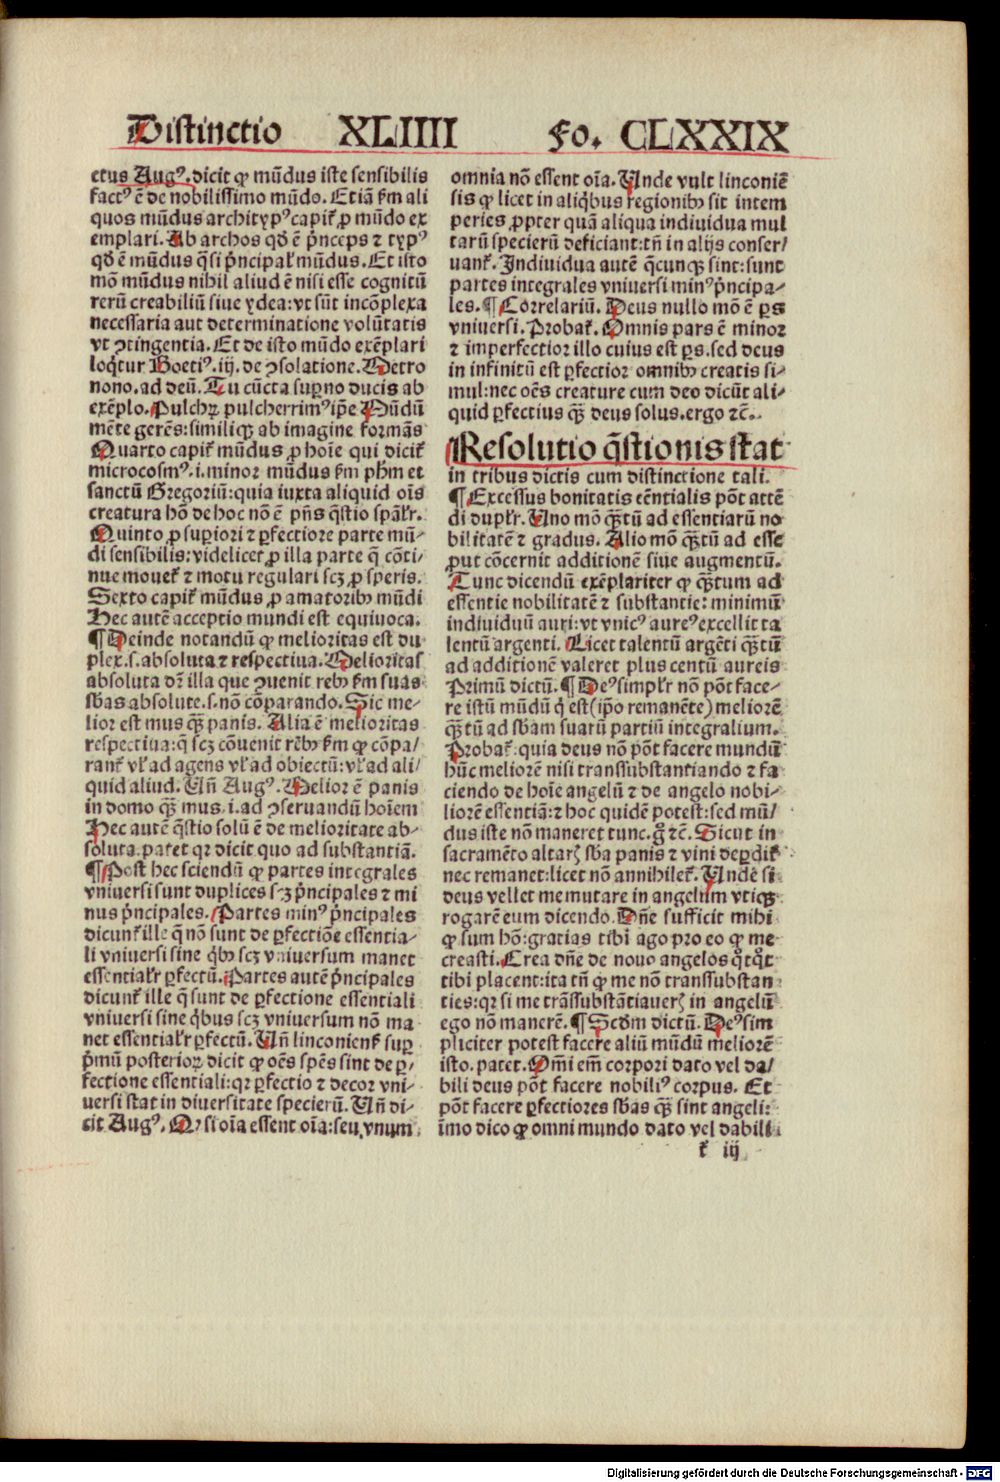 Distinctio XLIIII Fo. CLXXIX
ctus Augꝰ. dicit ꝙ mūdus iste sensibilis
factꝰ ē de nobilissimo mūdo. Etiā ẜm ali
quos mūdus architypꝰ capiť ꝓ mūdo ex
emplari. Ab archos qđ ē p̃nceps ⁊ typꝰ
qđ ē mūdus q̃si p̃ncipał mūdus. Et isto
mō mūdus nihil aliud ē nisi esse cognitū
rerū creabiliū siue ydea: vt sūt incōplexa
necessaria aut determinatione volūtatis
vt ꝯtingentia. Et de isto mūdo exēplari
loq̃tur Boetiꝰ. iij. de ꝯsolatione. Metro
nono. ad deū. Tu cūcta suꝑno ducis ab
exēplo. Pulchꝝ pulcherrimꝰ ip̃e Mūdū
mēte gerēs: similiqꝫ ab imagine formās
Quarto capiť mūdus ꝓ hoīe qui diciť
microcosmꝰ. i. minor mūdus ẜm ph̃m et
sanctū Gregoriū: quia iuxta aliquid oīs
creatura hō de hoc nō ē pn̄s q̃stio spāłr.
Quinto ꝓ suꝑiori ⁊ ꝑfectiore parte mū-
di sensibilis: videlicet ꝓ illa parte q̄ cōti-
nue moueť ⁊ motu regulari scꝫ ꝓ speris.
Sexto capiť mūdus ꝓ amatoribꝰ mūdi
Hec autē acceptio mundi est equiuoca.
¶ Deinde notandū ꝙ melioritas est du
plex. s. absoluta ⁊ respectiua. Melioritas
absoluta dr̄ illa que ꝯuenit rebꝰ ẜm suas
sb̄as absolute. s. nō cōparando. Sic me-
lior est mus qꝫ̄ panis. Alia ē melioritas
respectiua: q̄ scꝫ cōuenit rebꝰ ẜm ꝙ cōpa/
ranť vł ad agens vł ad obiectū: vł ad ali/
quid aliud. Un̄ Augꝰ. Melior ē panis
in domo qꝫ̄ mus. i. ad ꝯseruandū hoīem
Hec autē q̃stio solū ē de melioritate ab-
soluta. patet qr dicit quo ad substantiā.
¶ Post hec sciendū ꝙ partes integrales
vniuersi sunt duplices scꝫ p̃ncipales ⁊ mi
nus p̃ncipales. Partes minꝰ p̃ncipales
dicunť ille q̄ nō sunt de ꝑfectiōe essentia-
li vniuersi sine q̇bꝰ scꝫ vniuersum manet
essentiałr ꝑfectū. Partes autē p̃ncipales
dicunť ille q̄ sunt de ꝑfectione essentiali
vniuersi sine q̇bus scꝫ vniuersum nō ma
net essentiałr ꝑfectū. Un̄ linconienẜ suꝑ
p̃mū posterioꝝ dicit ꝙ oēs spēs sint de ꝑ/
fectione essentiali: qr ꝑfectio ⁊ decor vni-
uersi stat in diuersitate specierū. Un̄ di-
cit Augꝰ. Qr si oīa essent oīa: seu vnum
omnia nō essent oīa. Unde vult linconiē
sis ꝙ licet in aliq̇bus regionibꝰ sit intem
peries ꝓpter quā aliqua indiuidua mul
tarū specierū deficiant: tn̄ in alijs conser/
uanť. Indiuidua autē q̄cunqꝫ sint: sunt
partes integrales vniuersi minꝰ p̃ncipa-
les. ¶ Correlariū. Deus nullo mō ē ꝑs
vniuersi. Probať. Omnis pars ē minor
⁊ imperfectior illo cuius est ꝑs. sed deus
in infinitū est ꝑfectior omnibꝰ creatis si-
mul: nec oēs creature cum deo dicūt ali-
quid ꝑfectius qꝫ̄ deus solus. ergo ⁊c̄.
Resolutio q̃stionis stat
in tribus dictis cum distinctione tali.
¶ Excessus bonitatis eēntialis pōt attē
di dupłr. Uno mō qꝫ̄tū ad essentiarū no
bilitatē ⁊ gradus. Alio mō qꝫ̄tū ad esse
ꝓut cōcernit additionē siue augmentū.
Tunc dicendū exēplariter ꝙ qꝫ̄tum ad
essentie nobilitatē ⁊ substantie: minimū
indiuiduū auri: vt vnicꝰ aureꝰ excellit ta
lentū argenti. Licet talentū argēti qꝫ̄tū
ad additionē valeret plus centū aureis
Primū dictū. ¶ Deꝰ simpłr nō pōt face-
re istū mūdū q̇ est (ip̄o remanēte) meliorē
qꝫ̄tū ad sb̄am suarū partiū integralium.
Probať: quia deus nō pōt facere mundū
hūc meliorē nisi transsubstantiando ⁊ fa
ciendo de hoīe angelū ⁊ de angelo nobi-
liorē essentiā: ⁊ hoc quidē potest: sed mū/
dus iste nō maneret tunc. g̊ ⁊c̄. Sicut in
sacramēto altarꝭ sb̄a panis ⁊ vini deꝑdiť
nec remanet: licet nō annihileť. Unde si
deus vellet me mutare in angelum vtiqꝫ
rogarē eum dicendo. Dn̄e sufficit mihi
ꝙ sum hō: gratias tibi ago pro eo ꝙ me
creasti. Crea dn̄e de nouo angelos q̊tq̊t
tibi placent: ita tn̄ ꝙ me nō transsubstan
ties: qr si me trāssubstātiauerꝭ in angelū
ego nō manerē. ¶ Scd̄m dictū. Deꝰ sim
pliciter potest facere aliū mūdū meliorē
isto. patet. Om̄i em̄ corpori dato vel da/
bili deus pōt facere nobiliꝰ corpus. Et
pōt facere ꝑfectiores sb̄as qꝫ̄ sint angeli:
īmo dico ꝙ omni mundo dato vel dabili
ť iij
Digitalisierung gefördert durch die Deutsche Forschungsgemeinschaft - DFG